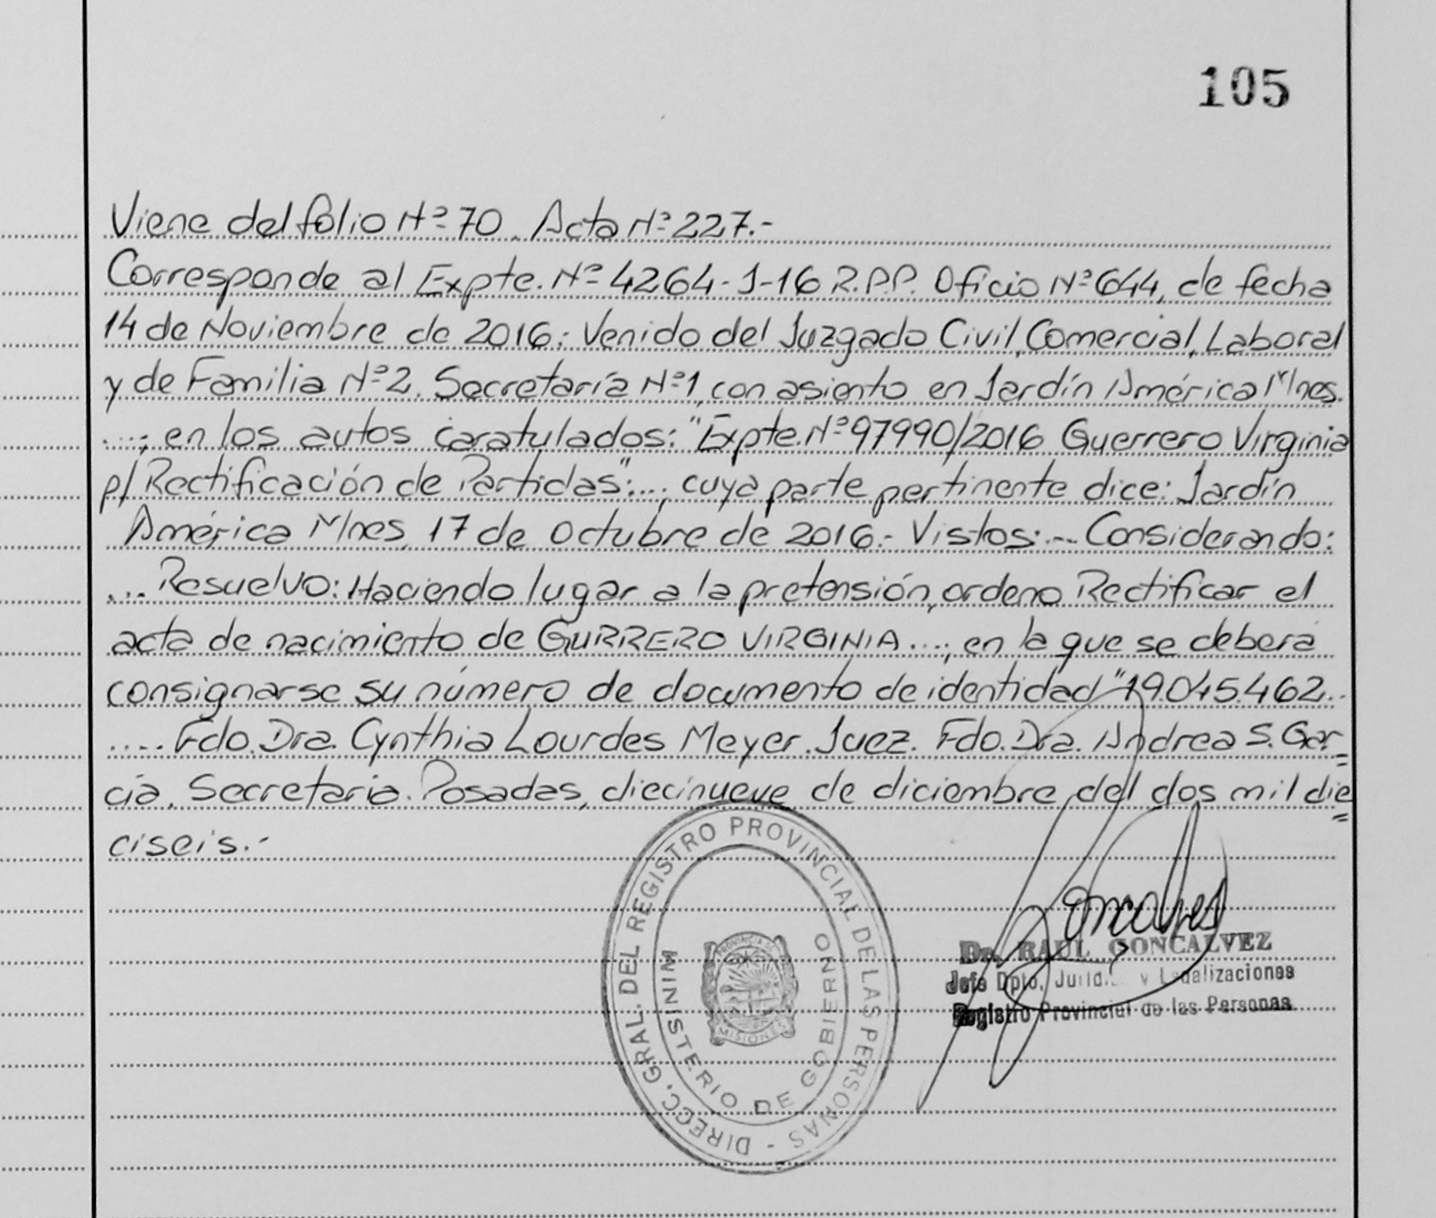 105
Viene del folio Nº 70. Acta Nº 227.-
Corresponde al Expte. Nº 4264-J-16 R.P.P. Oficio Nº 644, de fecha
14 de Noviembre de 2016: Venido del Juzgado Civil, Comercial, Laboral
y de Familia Nº 2, Secretaría Nº 1, con asiento en Jardín América Mnes.
....; en los autos caratulados: "Expte. Nº 97990/2016 Guerrero Virginia
p/ Rectificación de Partidas":..., cuya parte pertinente dice: Jardín
América Mnes, 17 de Octubre de 2016.- Vistos:... Considerando:
.... Resuelvo: Haciendo lugar a la pretensión, ordeno Rectificar el
acta de nacimiento de GURRERO VIRGINIA ...., en la que se deberá
consignarse su número de documento de identidad "19.045.462..
.... Fdo. Dra. Cynthia Lourdes Meyer. Juez. Fdo. Dra. Andrea S. Gar=
cía. Secretaria. Posadas, diecinueve de diciembre del dos mil die=
ciseis.-
DIRECC. GRAL. DEL REGISTRO PROVINCIAL DE LAS PERSONAS -
MINISTERIO DE GOBIERNO
PROVINCIA DE
MISIONES
Goncalves
Dr. RAUL GONCALVEZ
Jefe Dpto. y Legalizaciones
Registro Provincial de las Personas